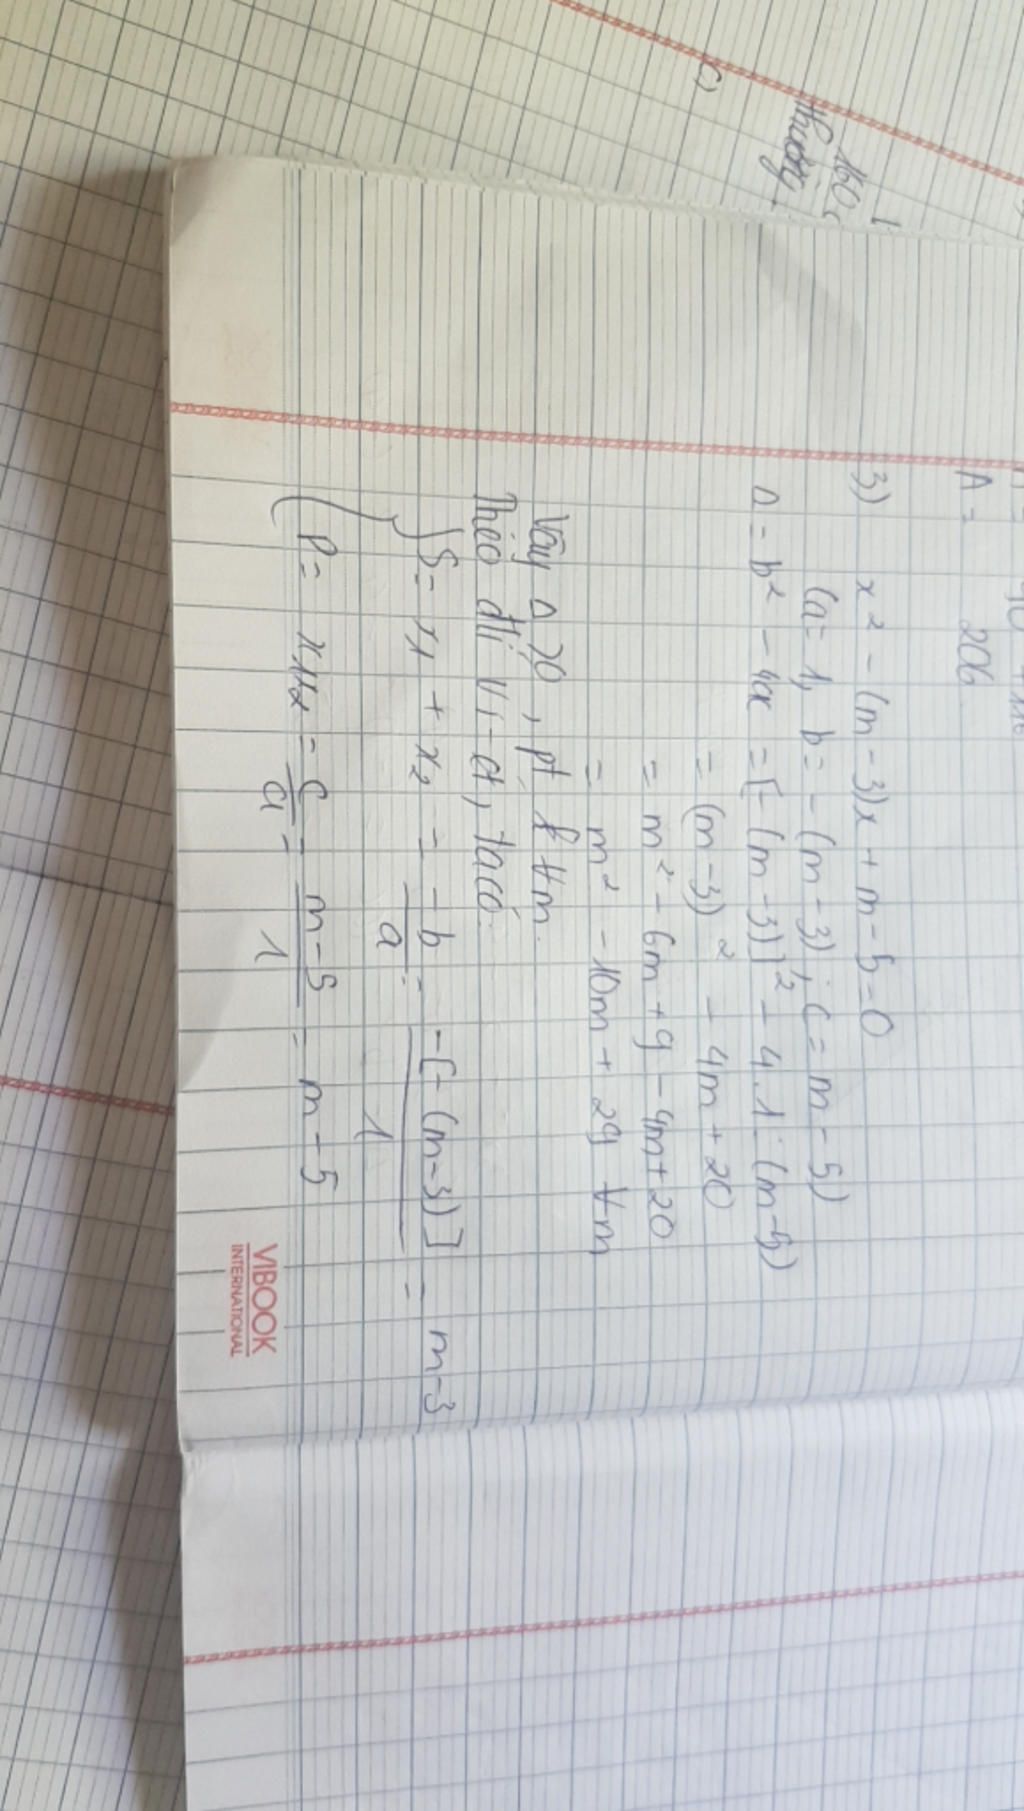 c)
160
thường
A =
206
3) x² - (m-3)x + m-5=0
(a=1, b=-(m-3); c=m-5)
Δ = b² - 4ac = [-(m-3)]² - 4.1.(m-5)
= (m-3)² - 4m+20
= m² - 6m + 9 - 4m + 20
= m² - 10m + 29 ∀m
Vậy Δ ≥0, pt ∀m.
Theo đlí Vi-ét, ta có:
S = x1 + x2 = -b/a = -[-(m-3)]/1 = m-3
P = x1x2 = c/a = m-5/1 = m-5
VIBOOK
INTERNATIONAL